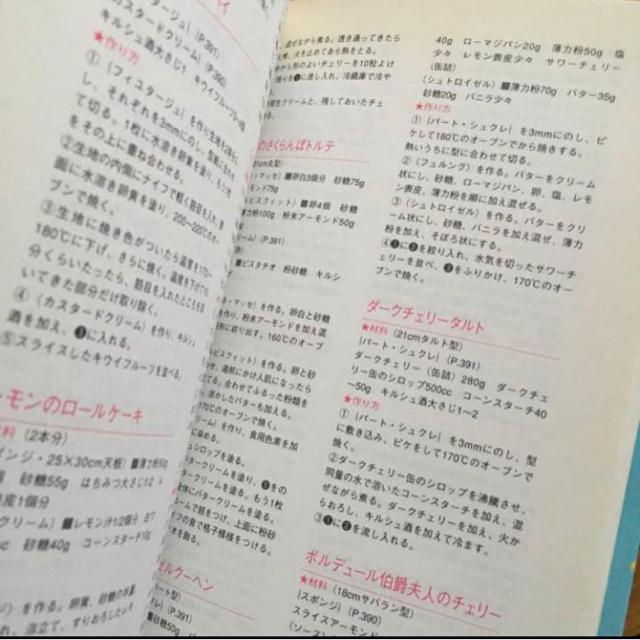 (カスタードクリーム) (P.390)
キルシュ酒大さじ1 キウイフルーツ
★作り方
①(フィユタージュ)を作り
し、それぞれを3mmにのし、
て切る。1枚に水溶き卵黄を塗り、
をその上に重ね合わせる。
②生地の内側にナイフで軽く筋目を入れ、
面に水溶き卵黄を塗り、200~220℃のオー
ブンで焼く。
③生地に焼き色がついたら温度を170~
180℃に下げ、さらに焼く。温度を下げて
分くらいたったら、筋目を入れたところを
いてきた部分だけ取り除く。
④(カスタードクリーム)を作り、キルシュ
酒を加え、③に入れる。
⑤スライスしたキウイフルーツを並べる。
モンのロールケーキ
(2本分)
・25×30cm天板)■薄力粉
砂糖55g はちみつ大さじ1/2
皮1個分
クリーム)■レモン汁1/2個分
砂糖40g コーンスターチ10g
を作る。卵黄、砂糖の
れ、泡立て、すりおろした
混ぜながら煮る。透き通ってきたら
え、火を止めてあら熱をとる。
形のよいチェリーを10粒よけ
に流し入れ、冷蔵庫で冷や
生クリームと、残しておいたチェ
のさくらんぼトルテ
(21cm丸型)
・マッセ)■卵白3個分 砂糖75g
アーモンド75g
ビスフィット)■卵4個 砂糖
力粉100g 粉末アーモンド50g
シュクレ)(P.391)
■ピスタチオ 粉砂糖 キルシ
・マッセ)を作る。卵白と砂糖
、粉末アーモンドを加え混
形に絞り出す。160℃のオーブ
ビスフィット)を作る。卵と砂
せ、湯煎にかけ人肌になったら
てる。合わせてふるった粉類を
、溶かしたバターも加える。
170℃のオーブンで焼く。
クリーム)を作り、食用色素を加
に染める。
シュシロップを塗る。
バタークリームを塗る。もう1枚
体にバタークリームを塗る。
クリームで筋をつけ、上面に粉砂
イフの背で格子模様をつける。
ェルクーヘン
ート型)
(P.391)
■砂糖50g
40g ローマジパン20g 薄力粉50g 塩
少々 レモン表皮少々 サワーチェリー
(缶詰)
(シュトロイゼル)■薄力粉70g バター35g
砂糖20g バニラ少々
★作り方
①(パート・シュクレ)を3mmにのし、ピ
ケして180℃のオーブンでから焼きする。
熱いうちに型に合わせて切る。
②(フュルング)を作る。バターをクリーム
状にし、砂糖、ローマジパン、卵、塩、レモ
ン表皮、薄力粉を順に加え混ぜる。
③(シュトロイゼル)を作る。バターをクリ
ーム状にし、砂糖、バニラを加え混ぜ、薄力
粉を加え、そぼろ状にする。
④①に②を絞り入れ、水気を切ったサワーチ
ェリーを並べ、③をふりかけ、170℃のオー
ブンで焼く。
ダークチェリータルト
★材料(21cmタルト型)
(パート・シュクレ)(P.391)
ダークチェリー(缶詰)280g ダークチェ
リー缶のシロップ500cc コーンスターチ40
~50g キルシュ酒大さじ1~2
★作り方
①(パート・シュクレ)を3mmにのし、型
に敷き込み、ピケをして170℃のオーブンで
焼く。
②ダークチェリー缶のシロップを沸騰させ、
同量の水で溶いたコーンスターチを加え、混
ぜながら煮る。ダークチェリーを加え、火か
らおろし、キルシュ酒を加えて冷ます。
③①に②を流し入れる。
ボルデュール伯爵夫人のチェリー
★材料(18cmサバラン型)
(スポンジ)(P.390)
スライスアーモンド